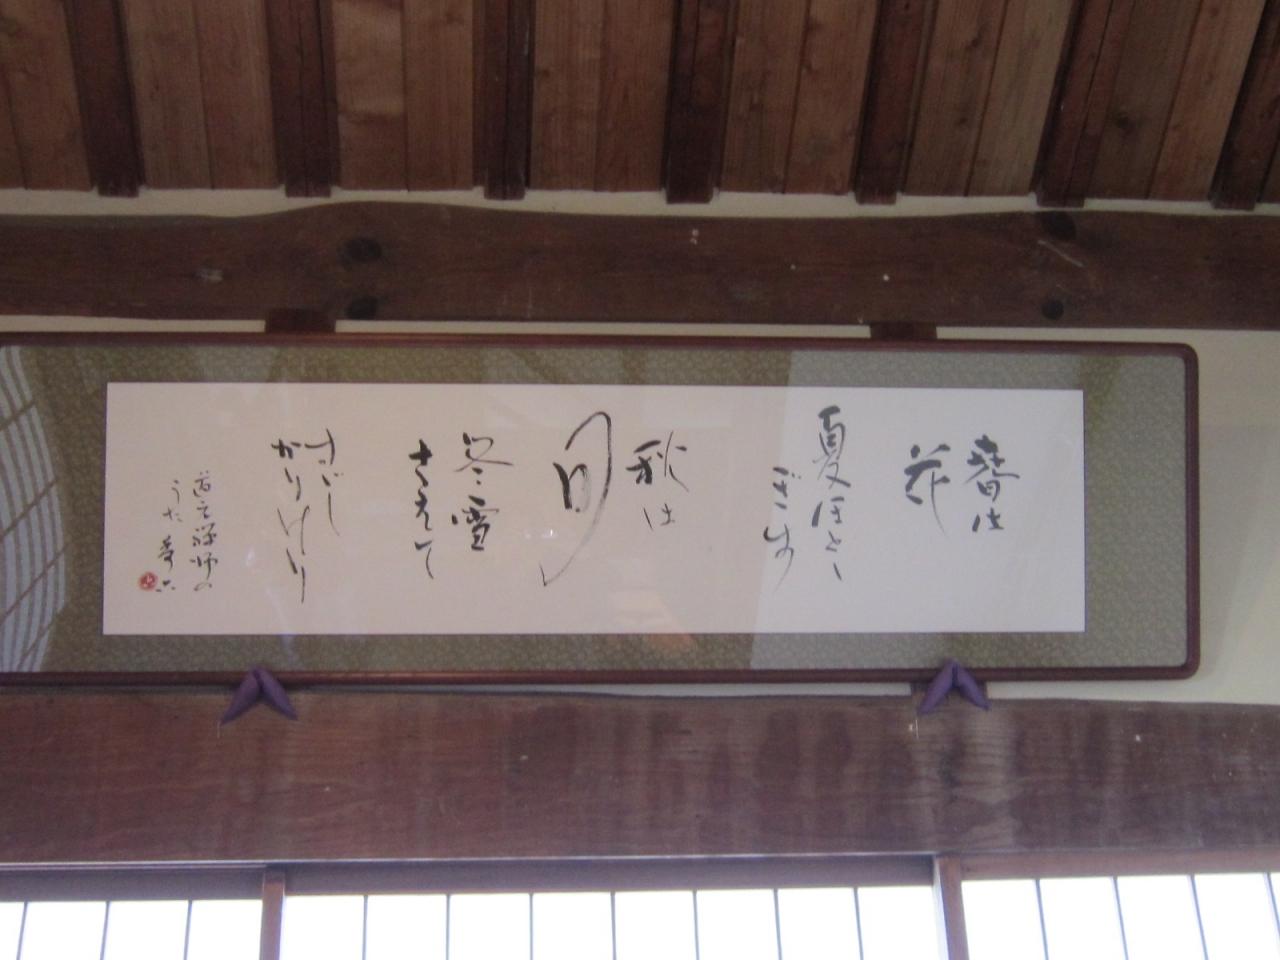 春は
花
夏ほとゝ
ぎす
秋は
月
冬雪
さえて
すゞし
かりけり
道元禅師の
うた